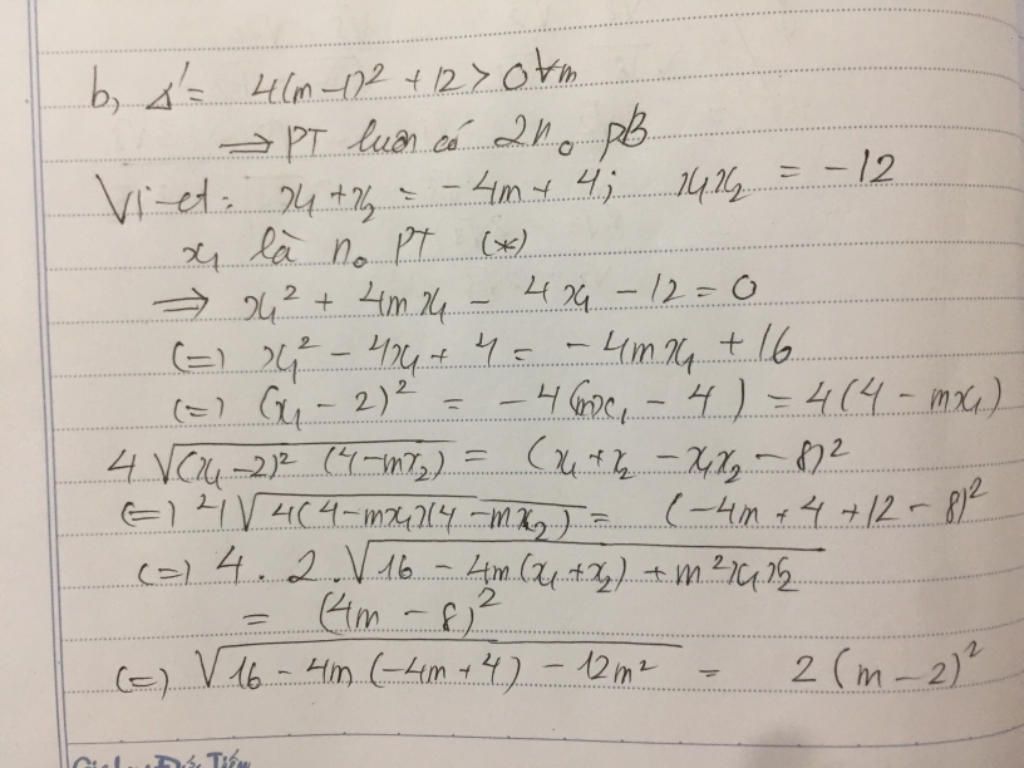 b, Δ' = 4(m-1)² + 12 > 0 ∀m
⇒ PT luôn có 2 n₀ pB
Vi-et: x₁ + x₂ = -4m + 4; x₁x₂ = -12
x₁ là n₀ PT (*)
⇒ x₁² + 4mx₁ - 4x₁ - 12 = 0
(=) x₁² - 4x₁ + 4 = -4mx₁ + 16
(=) (x₁ - 2)² = -4(mx₁ - 4) = 4(4 - mx₁)
4√((x₁-2)² (4-mx₂)) = (x₁ + x₂ - x₁x₂ - 8)²
(=) 4√(4(4-mx₁)(4-mx₂)) = (-4m + 4 + 12 - 8)²
(=) 4 . 2 . √(16 - 4m(x₁+x₂) + m²x₁x₂)
= (4m - 8)²
(=) √(16 - 4m(-4m+4) - 12m²) = 2(m-2)²